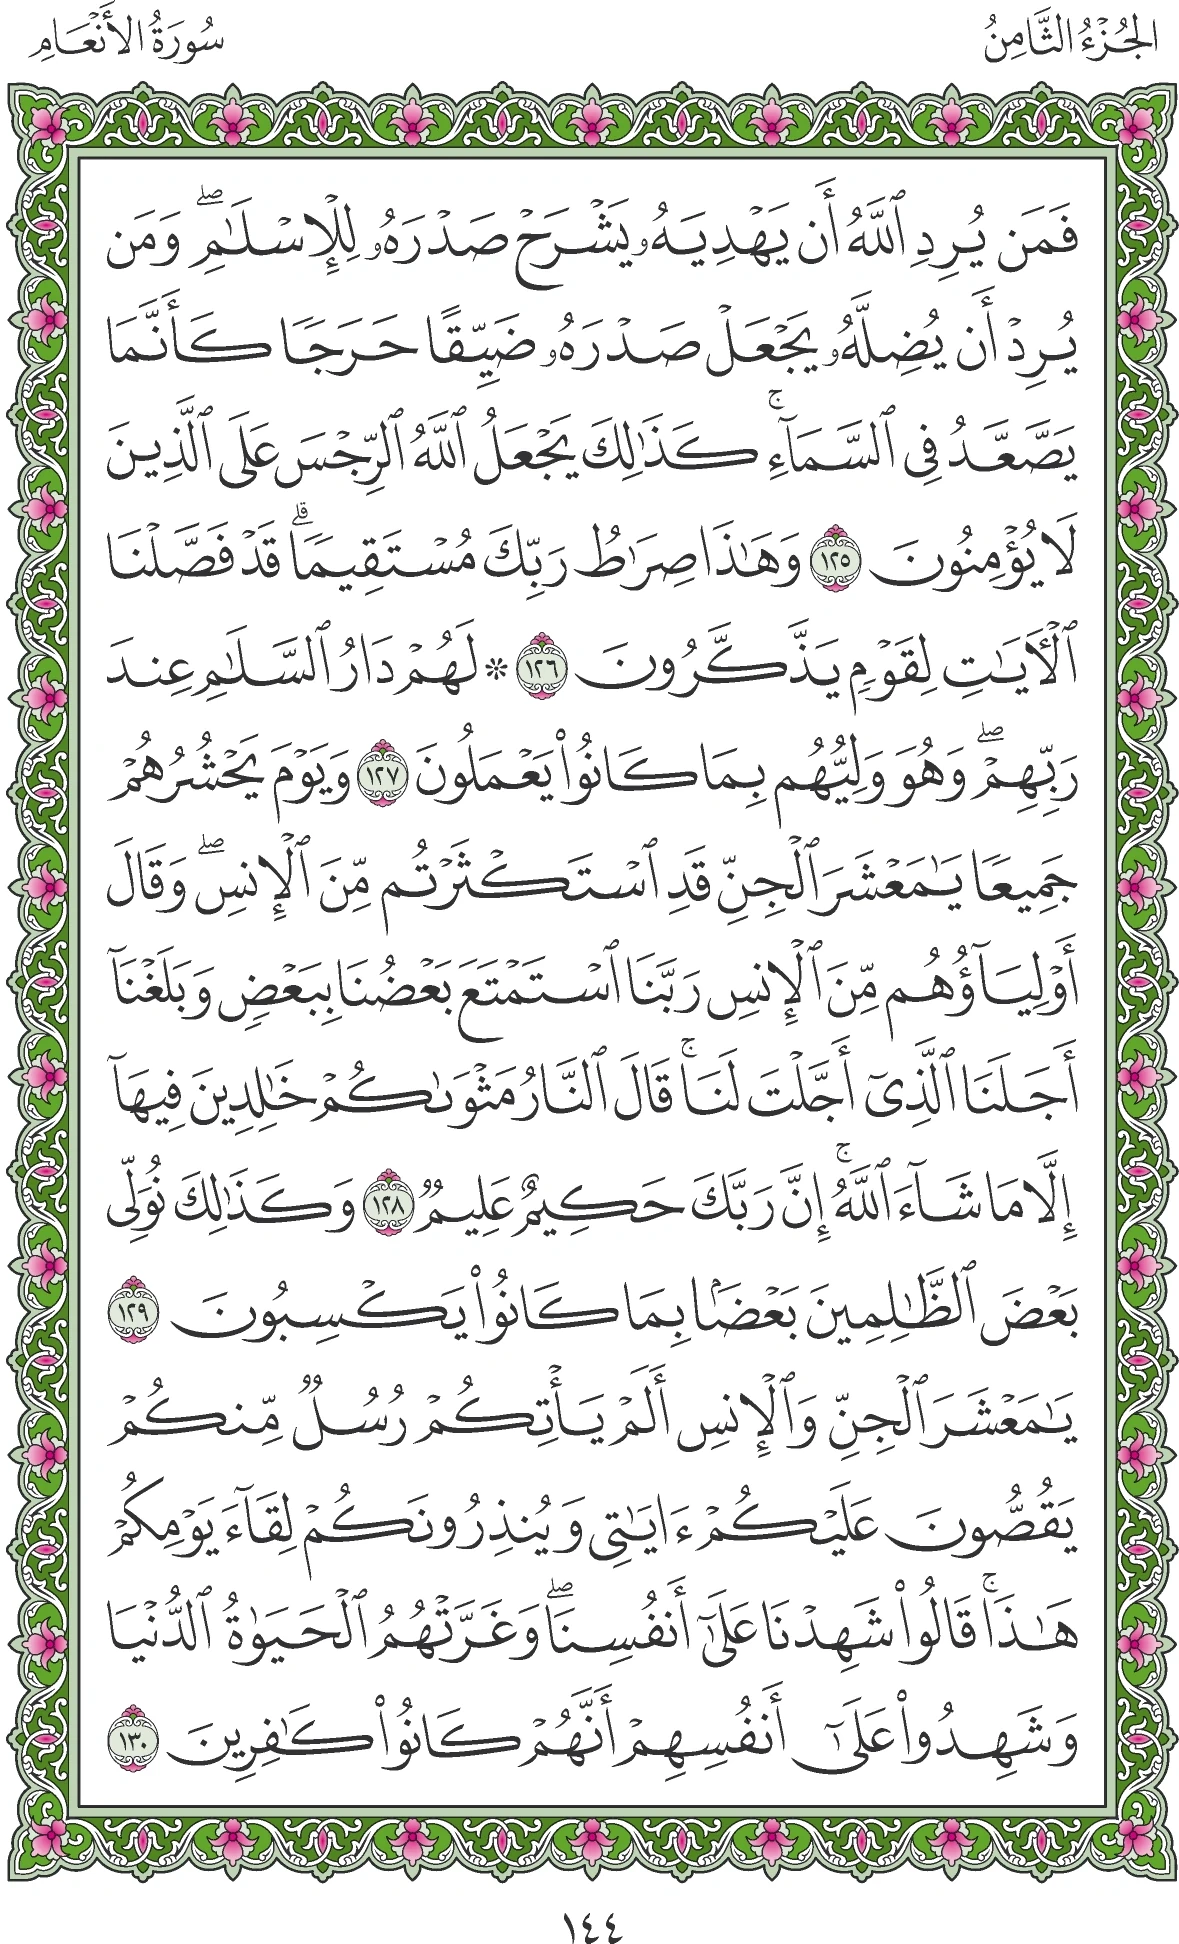 الجُزْءُ الثَّامِنُ
سُورَةُ الأَنْعَامِ
فَمَن يُرِدِ ٱللَّهُ أَن يَهْدِيَهُۥ يَشْرَحْ صَدْرَهُۥ لِلْإِسْلَٰمِۖ وَمَن
يُرِدْ أَن يُضِلَّهُۥ يَجْعَلْ صَدْرَهُۥ ضَيِّقًا حَرَجًا كَأَنَّمَا
يَصَّعَّدُ فِى ٱلسَّمَآءِۚ كَذَٰلِكَ يَجْعَلُ ٱللَّهُ ٱلرِّجْسَ عَلَى ٱلَّذِينَ
لَا يُؤْمِنُونَ ١٢٥ وَهَٰذَا صِرَٰطُ رَبِّكَ مُسْتَقِيمًاۗ قَدْ فَصَّلْنَا
ٱلْأَيَٰتِ لِقَوْمٍ يَذَّكَّرُونَ ١٢٦ ۞ لَهُمْ دَارُ ٱلسَّلَٰمِ عِندَ
رَبِّهِمْۖ وَهُوَ وَلِيُّهُم بِمَا كَانُوا۟ يَعْمَلُونَ ١٢٧ وَيَوْمَ يَحْشُرُهُمْ
جَمِيعًا يَٰمَعْشَرَ ٱلْجِنِّ قَدِ ٱسْتَكْثَرْتُم مِّنَ ٱلْإِنسِۖ وَقَالَ
أَوْلِيَآؤُهُم مِّنَ ٱلْإِنسِ رَبَّنَا ٱسْتَمْتَعَ بَعْضُنَا بِبَعْضٍ وَبَلَغْنَآ
أَجَلَنَا ٱلَّذِىٓ أَجَّلْتَ لَنَاۚ قَالَ ٱلنَّارُ مَثْوَىٰكُمْ خَٰلِدِينَ فِيهَآ
إِلَّا مَا شَآءَ ٱللَّهُۚ إِنَّ رَبَّكَ حَكِيمٌ عَلِيمٌ ١٢٨ وَكَذَٰلِكَ نُوَلِّى
بَعْضَ ٱلظَّٰلِمِينَ بَعْضًۢا بِمَا كَانُوا۟ يَكْسِبُونَ ١٢٩
يَٰمَعْشَرَ ٱلْجِنِّ وَٱلْإِنسِ أَلَمْ يَأْتِكُمْ رُسُلٌ مِّنكُمْ
يَقُصُّونَ عَلَيْكُمْ ءَايَٰتِى وَيُنذِرُونَكُمْ لِقَآءَ يَوْمِكُمْ
هَٰذَاۚ قَالُوا۟ شَهِدْنَا عَلَىٰٓ أَنفُسِنَاۖ وَغَرَّتْهُمُ ٱلْحَيَوٰةُ ٱلدُّنْيَا
وَشَهِدُوا۟ عَلَىٰٓ أَنفُسِهِمْ أَنَّهُمْ كَانُوا۟ كَٰفِرِينَ ١٣٠
١٤٤